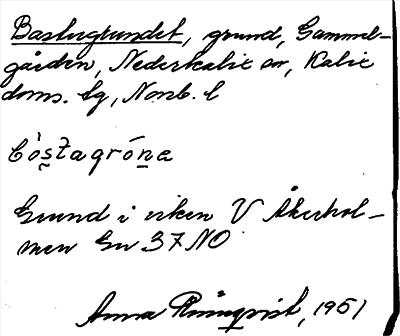 Bastugrundet, grund, Gammel-
gården, Nederkalix sn, Kalix
doms. sg, Norrb. l
bòstagróne
Grund i viken V Åkerhol-
men Gu 37 NO
Anna Rönnqvist, 1951